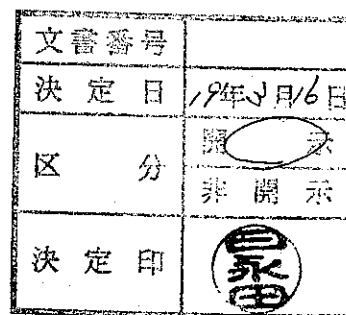 文書番号
決定日 19年3月16日
区分 開示
非開示
決定印 永田